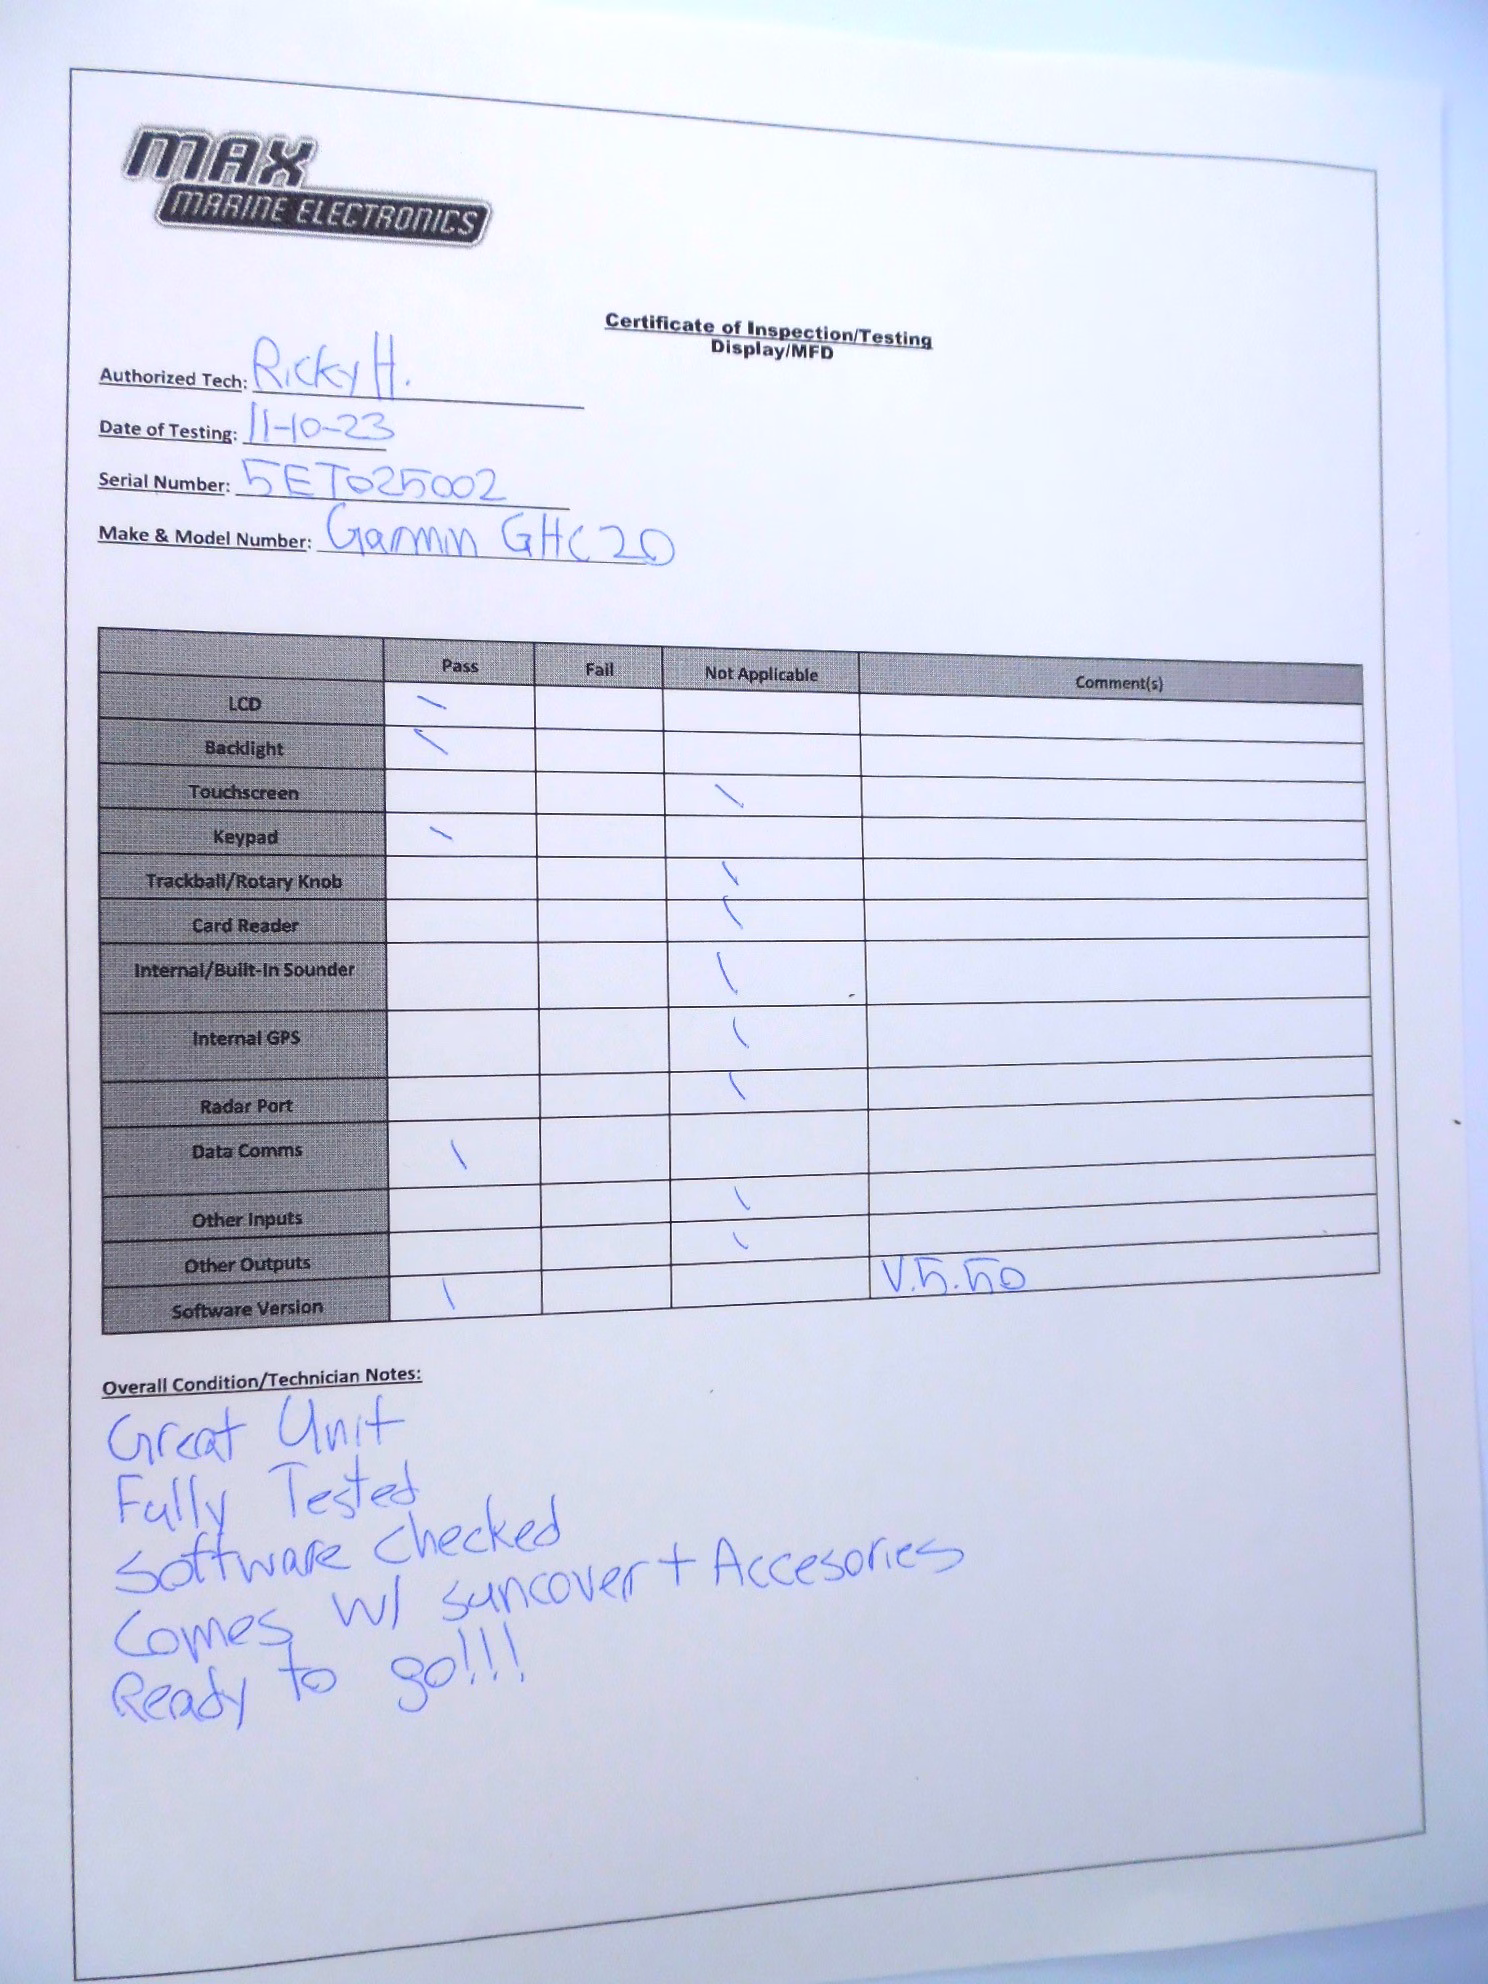 MAX
MARINE ELECTRONICS
Certificate of Inspection/Testing
Display/MFD
Authorized Tech: Ricky H.
Date of Testing: 11-10-23
Serial Number: 5ET025002
Make & Model Number: Garmin GHC 20
Pass Fail Not Applicable Comment(s)
LCD \
Backlight \
Touchscreen \
Keypad \
Trackball/Rotary Knob \
Card Reader \
Internal/Built-In Sounder \
Internal GPS \
Radar Port \
Data Comms \
Other Inputs \
Other Outputs \
Software Version \ V.5.50
Overall Condition/Technician Notes:
Great Unit
Fully Tested
Software checked
Comes w/ suncover + Accesories
Ready to go!!!